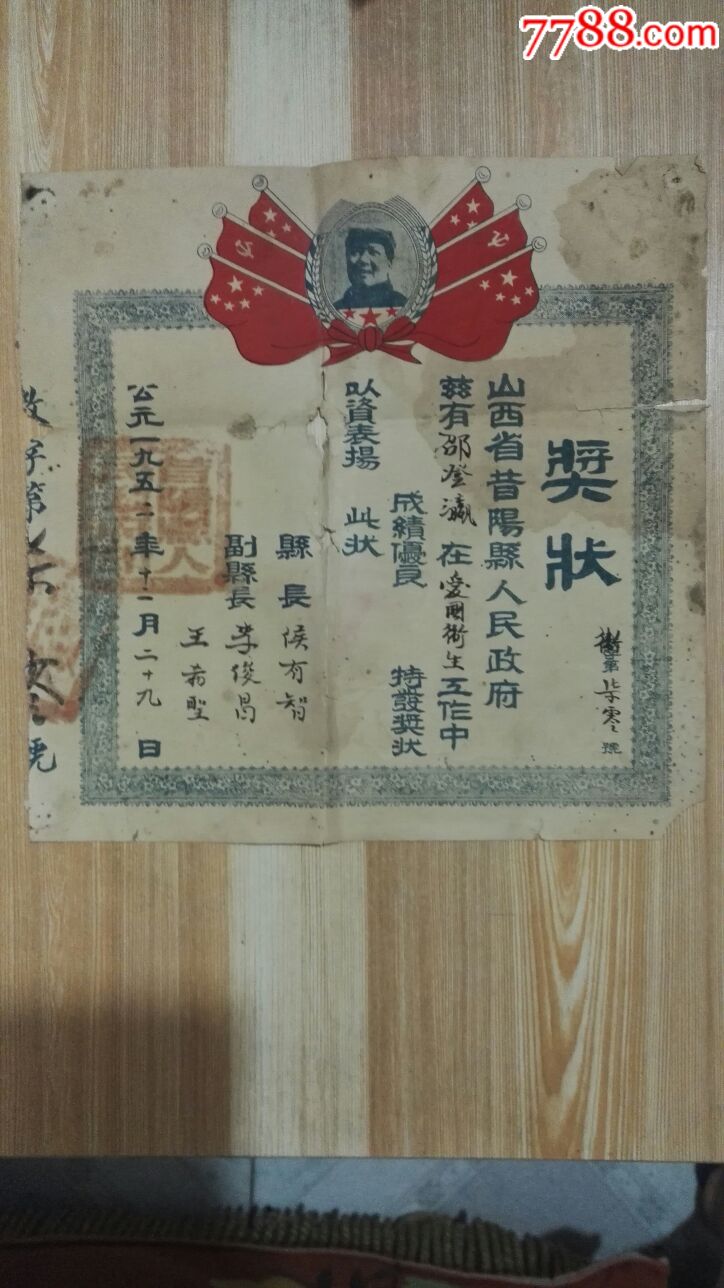 7788.com
獎狀
衛字第柒零號
山西省昔陽縣人民政府
兹有邵登瀛在愛国衛生工作中
成績優良 特發奬狀
以資表揚 此狀
縣長 侯有智
副縣長 李俊昌
王希聖
公元一九五二年十二月二十九日